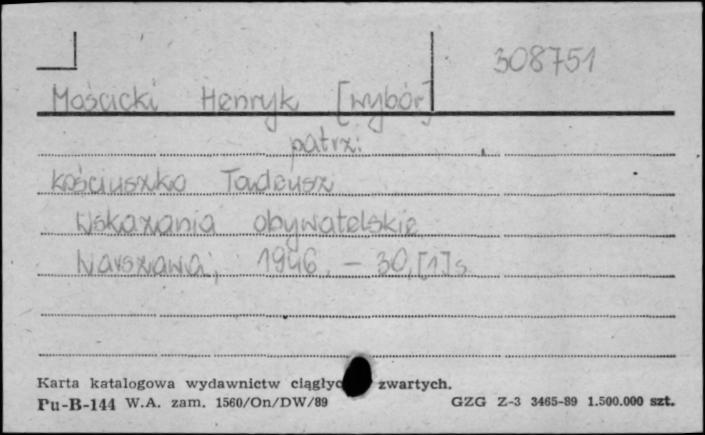 308751
Mościcki Henryk [wybór]
patrz:
Kościuszko Tadeusz
Wskazania obywatelskie
Warszawa, 1946. – 30,[1]s.
Karta katalogowa wydawnictw ciągłyc zwartych.
Pu-B-144 W.A. zam. 1560/On/DW/89 GZG Z-3 3465-89 1.500.000 szt.